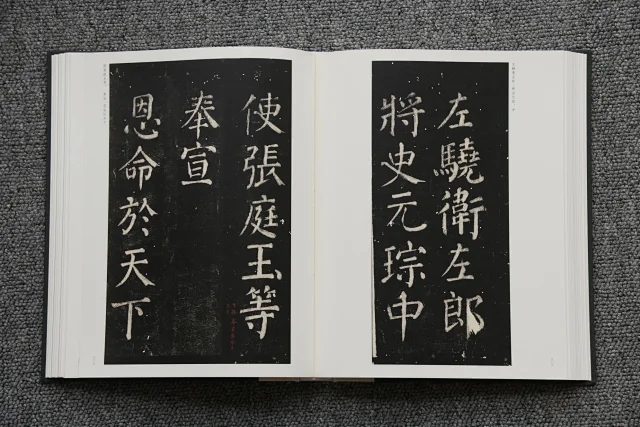 左驍衛左郎
將史元琮中
使張庭玉等
奉宣
恩命於天下